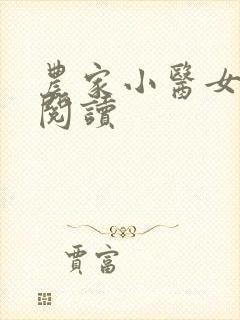 農家小醫女
閱讀
賈富